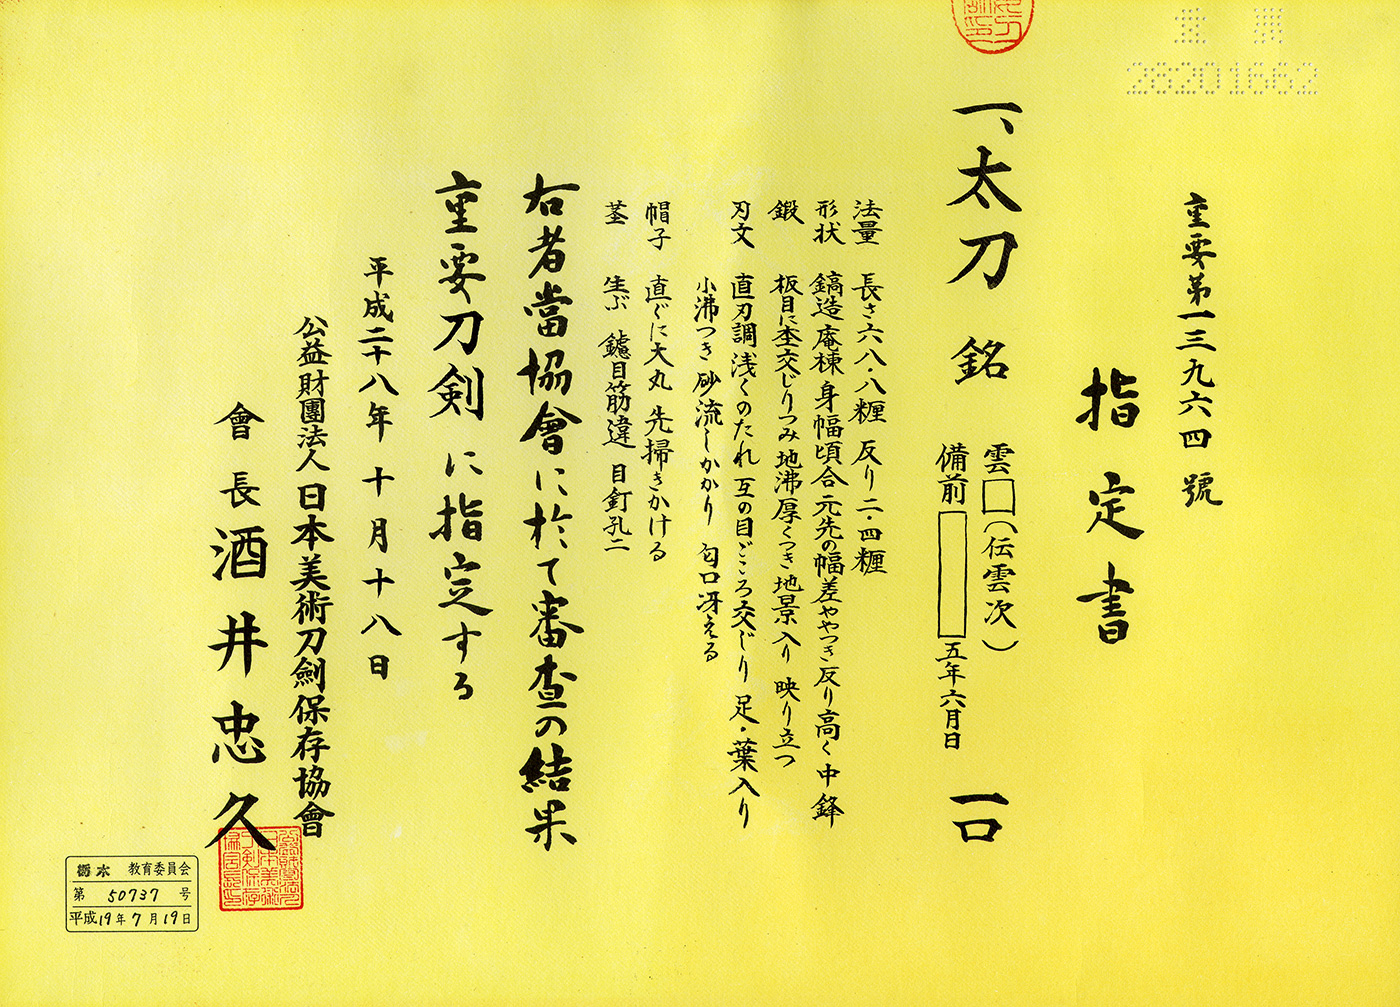 重要
28201662
重要第一三九六四號
指定書
一、太刀 銘 雲□(伝雲次) 一口
備前□五年六月日
法量 長さ六八・八糎 反り二・四糎
形状 鎬造 庵棟 身幅頃合 元先の幅差ややつき 反り高く 中鋒
鍛 板目に杢交じりつみ 地沸厚くつき 地景入り 映り立つ
刃文 直刃調 浅くのたれ 互の目ごころ交じり 足・葉入り
小沸つき 砂流しかかり 匂口冴える
帽子 直ぐに大丸 先掃きかける
茎 生ぶ 鑢目筋違 目釘孔二
右者當協會に於て審査の結果
重要刀剣に指定する
平成二十八年十月十八日
公益財團法人日本美術刀劍保存協會
會長 酒井忠久
栃木 教育委員会
第 50737 号
平成19年7月19日